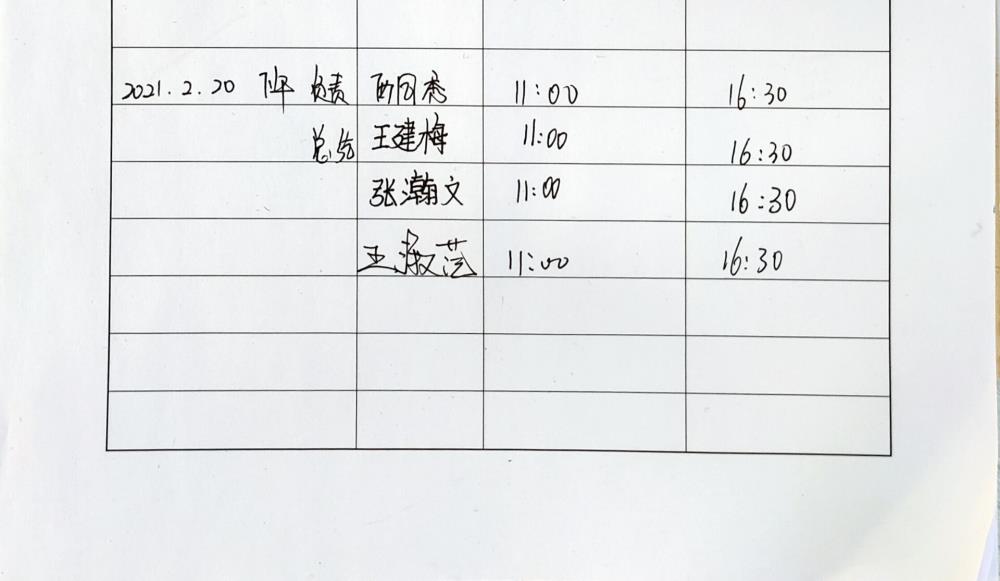 2021.2.20 负责 11:00 16:30
总给 王建梅 11:00 16:30
张瀚文 11:00 16:30
王淑 11:00 16:30